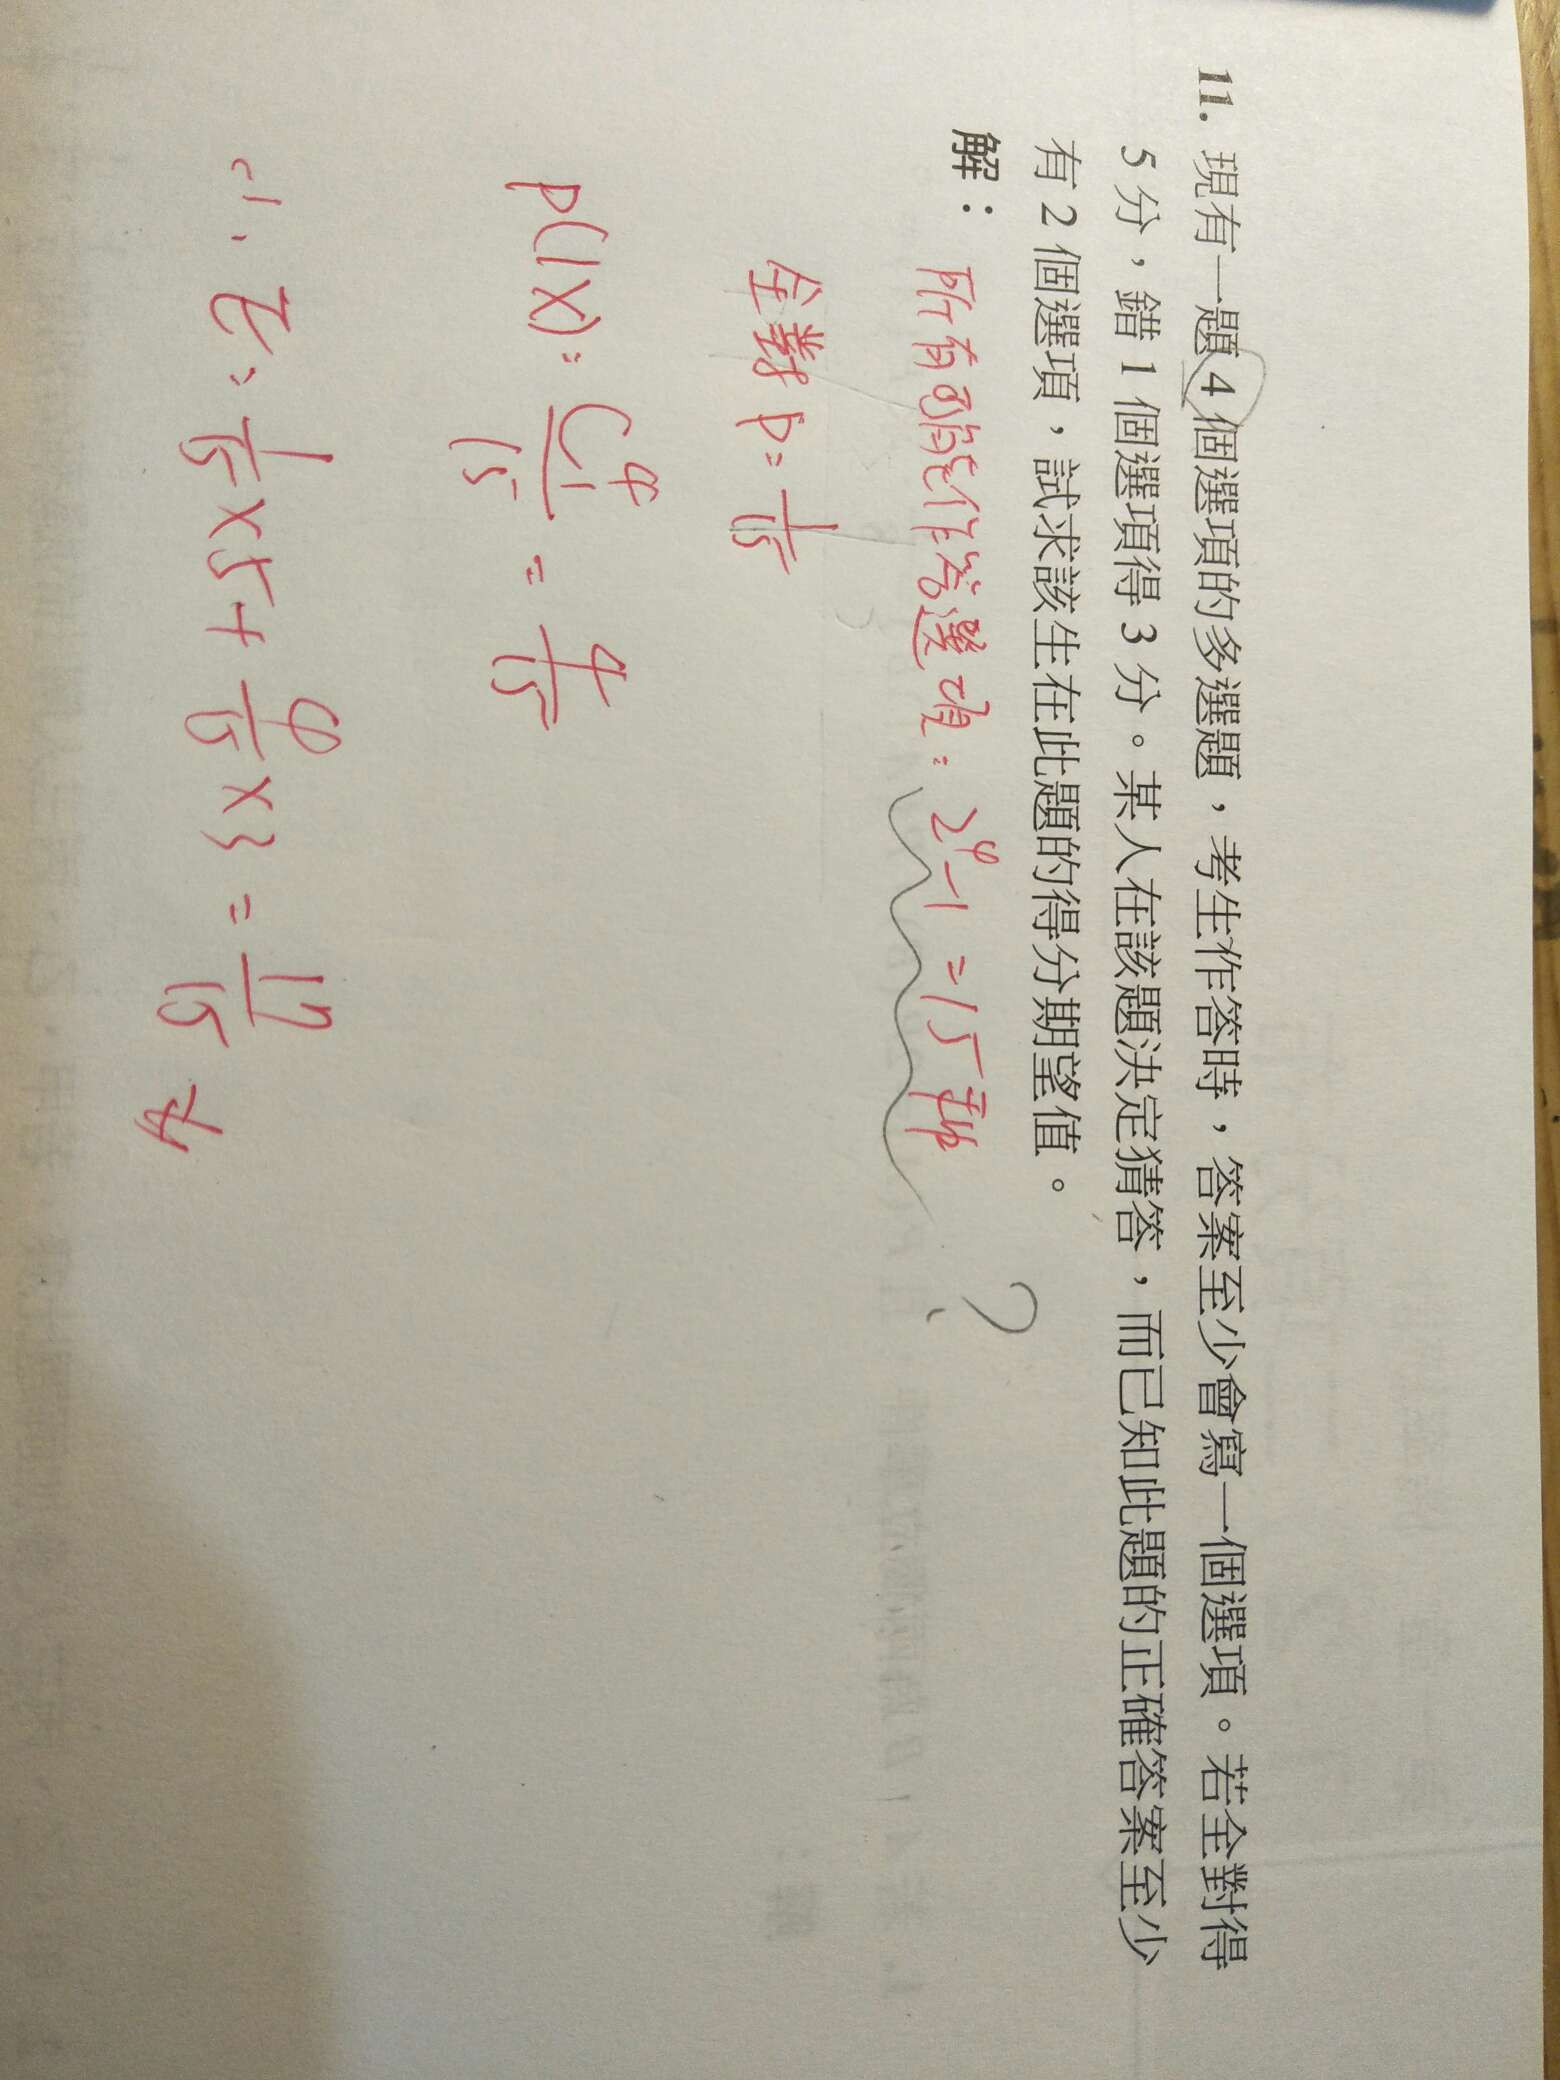 11. 現有一題 4 個選項的多選題，考生作答時，答案至少會寫一個選項。若全對得
5 分，錯 1 個選項得 3 分。某人在該題決定猜答，而已知此題的正確答案至少
有 2 個選項，試求該生在此題的得分期望值。
解：所有可能作答選項：2⁴-1=15 種 ?
全對 P=1/15
P(1X)：C⁴₁/15 = 4/15
∴ E = 1/15×5+4/15×3=17/15